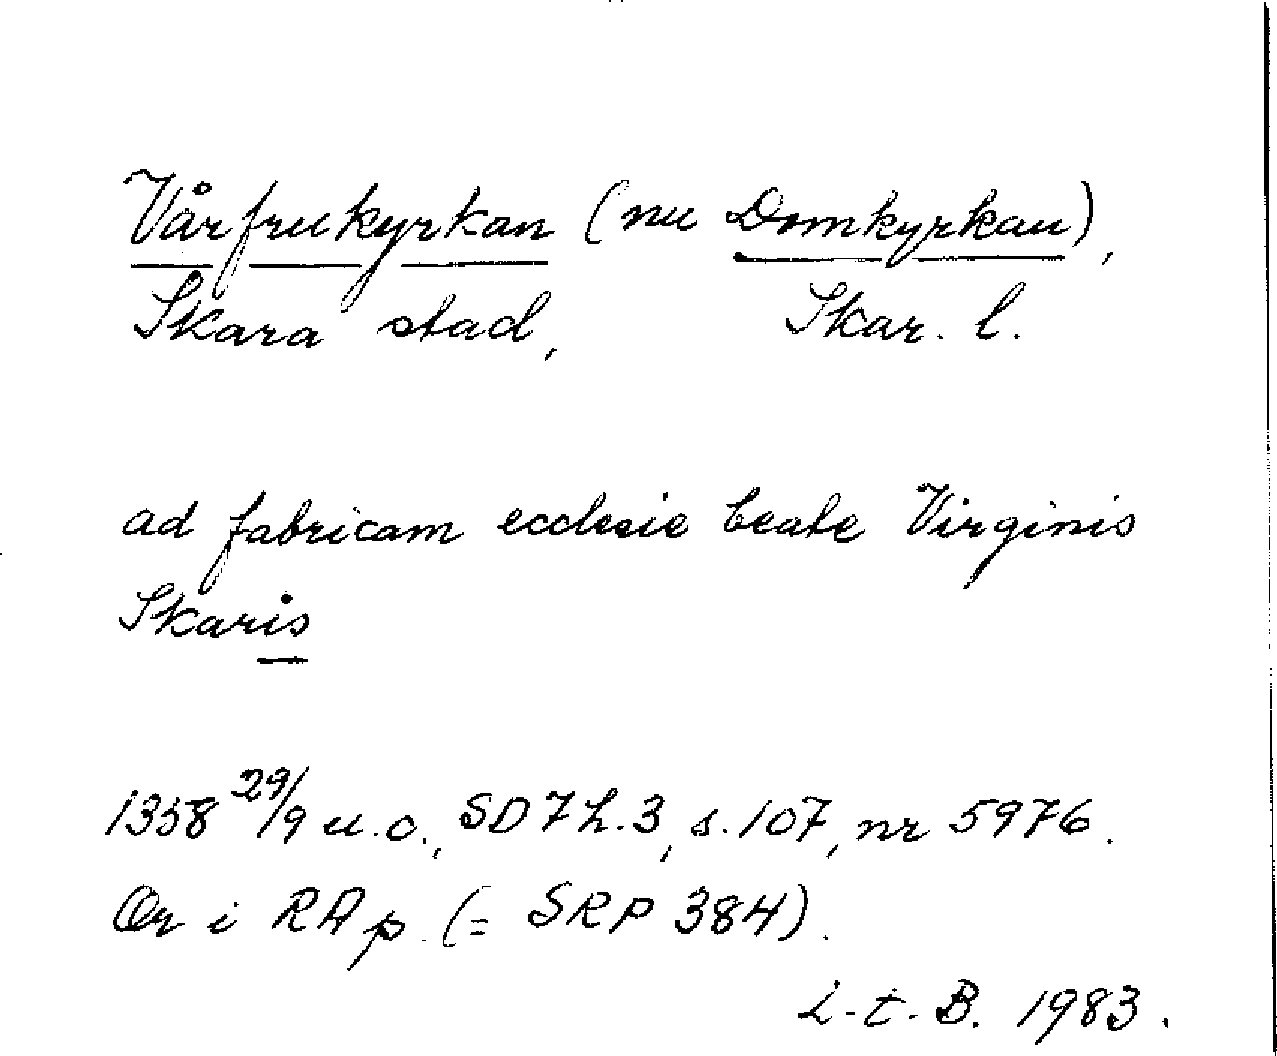 Vårfrukyrkan (nu Domkyrkan),
Skara stad, Skar. l.
ad fabricam ecclesie beate Virginis
Skaris
1358 29/9 u.o., SD 7 h.3, s.107, nr 5976.
Or i RAp. (= SRP 384).
L-t. B. 1983.